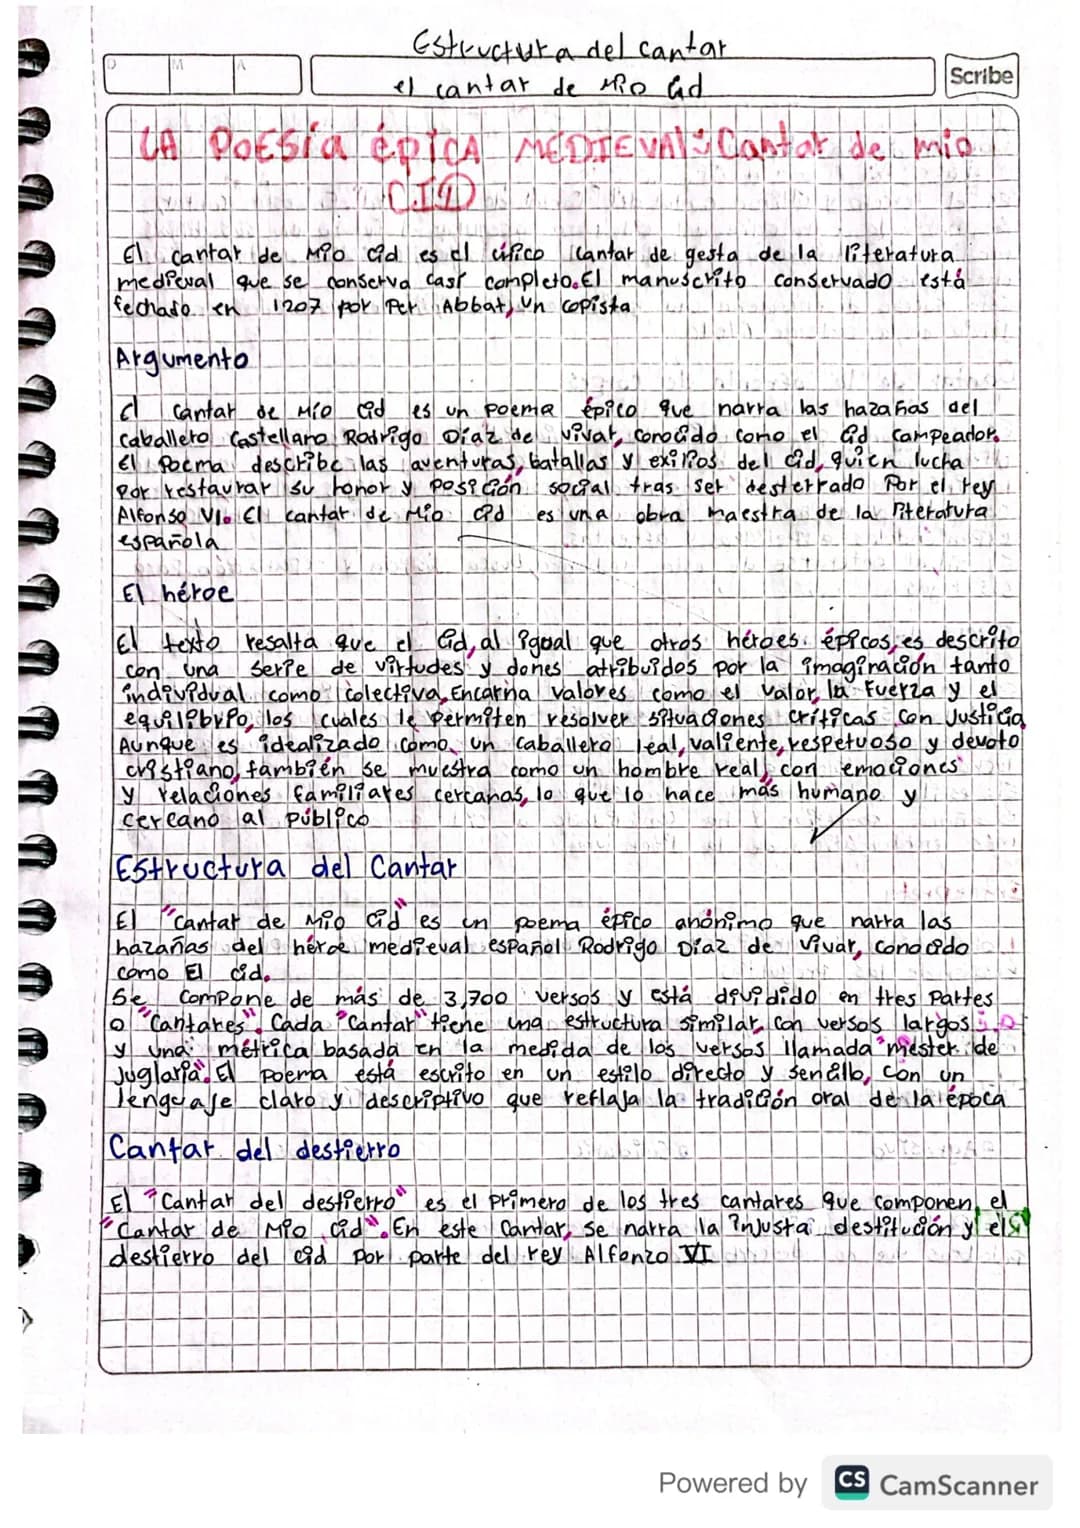 Estructura del cantar
D M A
el cantar de Mio Cid
Scribe
LA POESía épica MEDIEVAL: Cantar de mio
CID
El cantar de Mio Cid es el único cantar de gesta de la literatura
medieval que se conserva casi completo. El manuscrito conservado está
fechado en 1207 por Per Abbat, un copista
Argumento
El cantar de Mio Cid es un poema épico que narra las hazañas del
caballero Castellano Rodrigo Díaz de vivar, conocido como el Cid Campeador.
El Poema describe las aventuras, batallas y exilios del Cid, quien lucha
por restaurar su honor y posición social tras ser desterrado Por el rey
Alfonso VI. El cantar de Mio Cid es una obra maestra de la literatura
española
El héroe
El texto resalta que el Cid, al igual que otros héroes épicos, es descrito
con una serie de virtudes y dones atribuidos por la imaginación tanto
individual como colectiva, Encarna valores como el valor, la fuerza y el
equilibrio, los cuales le permiten resolver situaciones críticas con Justicia
Aunque es idealizado como un caballero leal, valiente, respetuoso y devoto
cristiano, también se muestra como un hombre real, con emociones
y relaciones familiares cercanas, lo que lo hace más humano y
cercano al público
Estructura del Cantar
El "cantar de Mio Cid" es un poema épico anónimo que narra las
hazañas del héroe medieval español Rodrigo Díaz de vivar, conocido
como El Cid.
Se compone de más de 3,700 versos y está dividido en tres Partes
o "Cantares". Cada "Cantar" tiene una estructura similar, con versos largos
y una métrica basada en la medida de los versos llamada "mester de
Juglaría". El poema está escrito en un estilo directo y sencillo, con un
lenguaje claro y descriptivo que reflaja la tradición oral de la época
Cantar del destierro
El "Cantar del destierro" es el primero de los tres cantares que componen el
"Cantar de Mio Cid". En este Cantar, se narra la injusta destitución y el
destierro del Cid por parte del rey Alfonzo VI
Powered by CS CamScanner